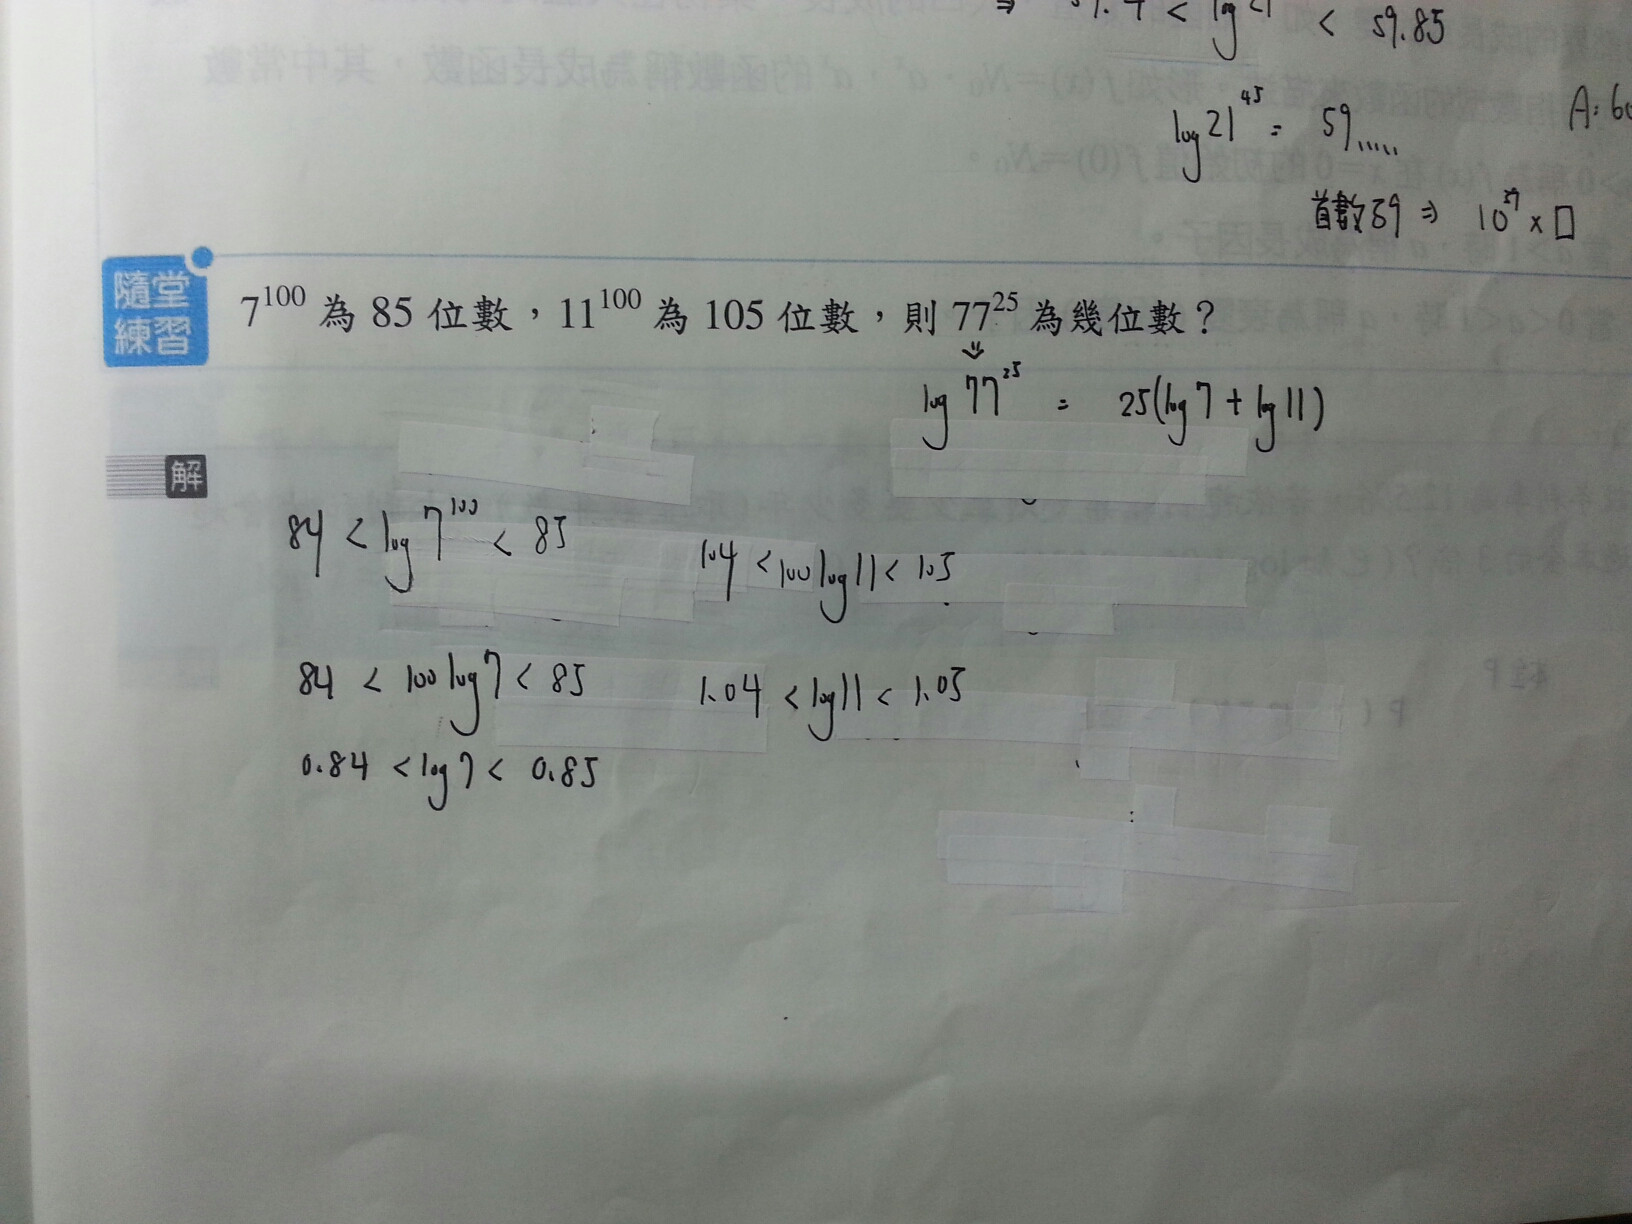 < 59.85
log21^45 = 59.....
首數59 ⇒ 10^59 × □
隨堂練習
7^100 為 85 位數，11^100 為 105 位數，則 77^25 為幾位數？
log 77^25 = 25(log7 + log11)
解
84 < log7^100 < 85
104 < 100log11 < 105
84 < 100log7 < 85
1.04 < log11 < 1.05
0.84 < log7 < 0.85